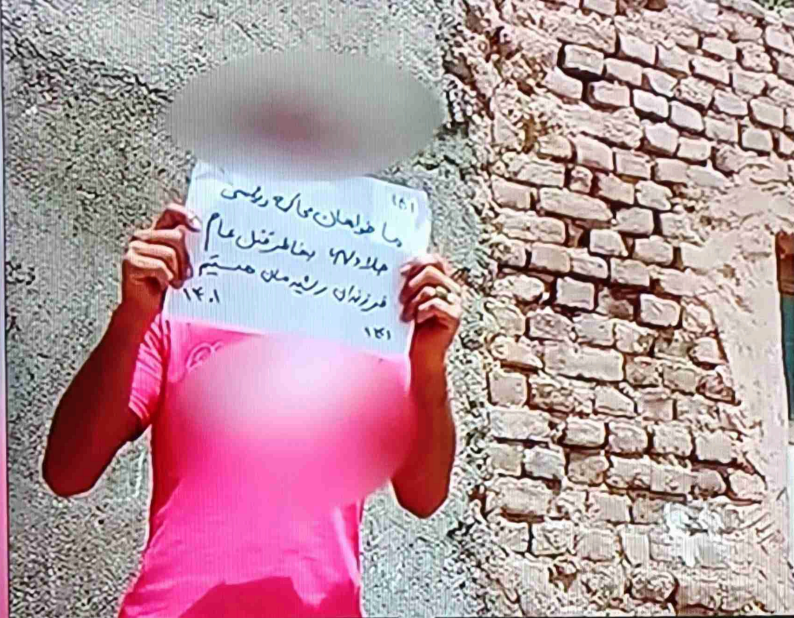 ۱۴۱
ما خواهان محاکمه رئیسی
جلاد ۶۷ بخاطر قتل عام
فرزندان رشیدمان هستیم
۱۴۰۱
۱۴۱